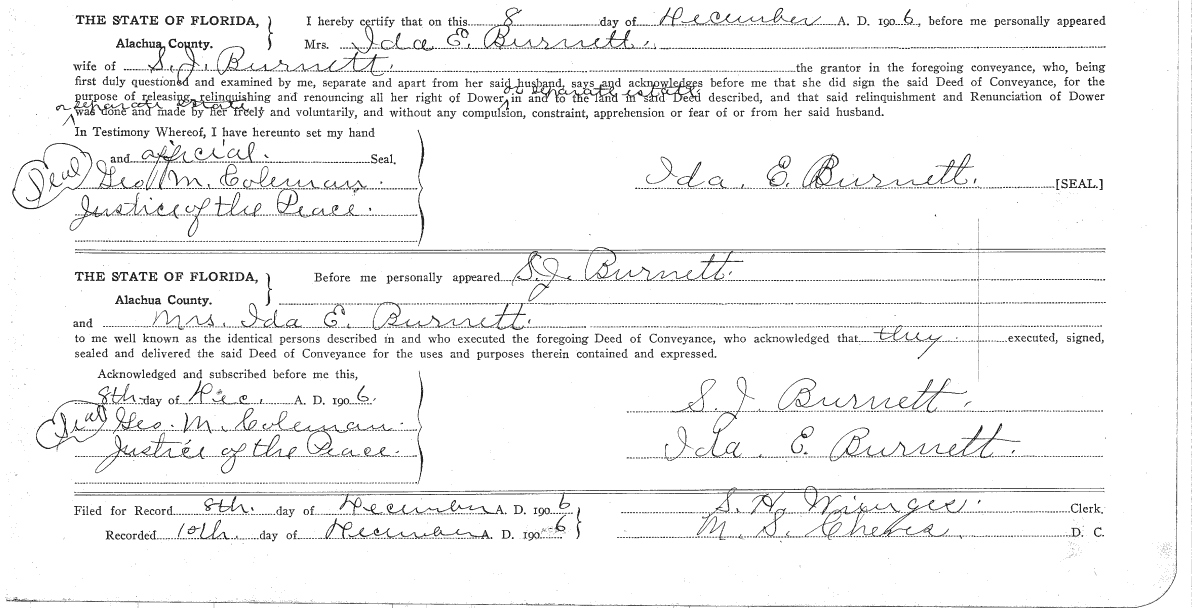 THE STATE OF FLORIDA, } I hereby certify that on this 8 day of December A. D. 1906, before me personally appeared
Alachua County. Mrs. Ida E. Burnett.
wife of S. J. Burnett. the grantor in the foregoing conveyance, who, being
first duly questioned and examined by me, separate and apart from her said husband, says and acknowledges before me that she did sign the said Deed of Conveyance, for the
or separate estate
purpose of releasing, relinquishing and renouncing all her right of Dower in and to the land in said Deed described, and that said relinquishment and Renunciation of Dower
or separate estate
was done and made by her freely and voluntarily, and without any compulsion, constraint, apprehension or fear of or from her said husband.
In Testimony Whereof, I have hereunto set my hand
and official. Seal.
Seal Geo M. Coleman. Ida. E. Burnett. [SEAL.]
Justice of the Peace.
THE STATE OF FLORIDA, } Before me personally appeared S. J. Burnett.
Alachua County.
and Mrs. Ida E. Burnett.
to me well known as the identical persons described in and who executed the foregoing Deed of Conveyance, who acknowledged that they executed, signed,
sealed and delivered the said Deed of Conveyance for the uses and purposes therein contained and expressed.
Acknowledged and subscribed before me this,
8th day of Dec. A. D. 1906. S. J. Burnett.
Seal Geo. M. Coleman.
Justice of the Peace. Ida. E. Burnett.
Filed for Record 8th. day of December A. D. 1906 S. H. Wienges. Clerk.
Recorded 10th. day of December A. D. 1906 } M. S. Cheves. D. C.